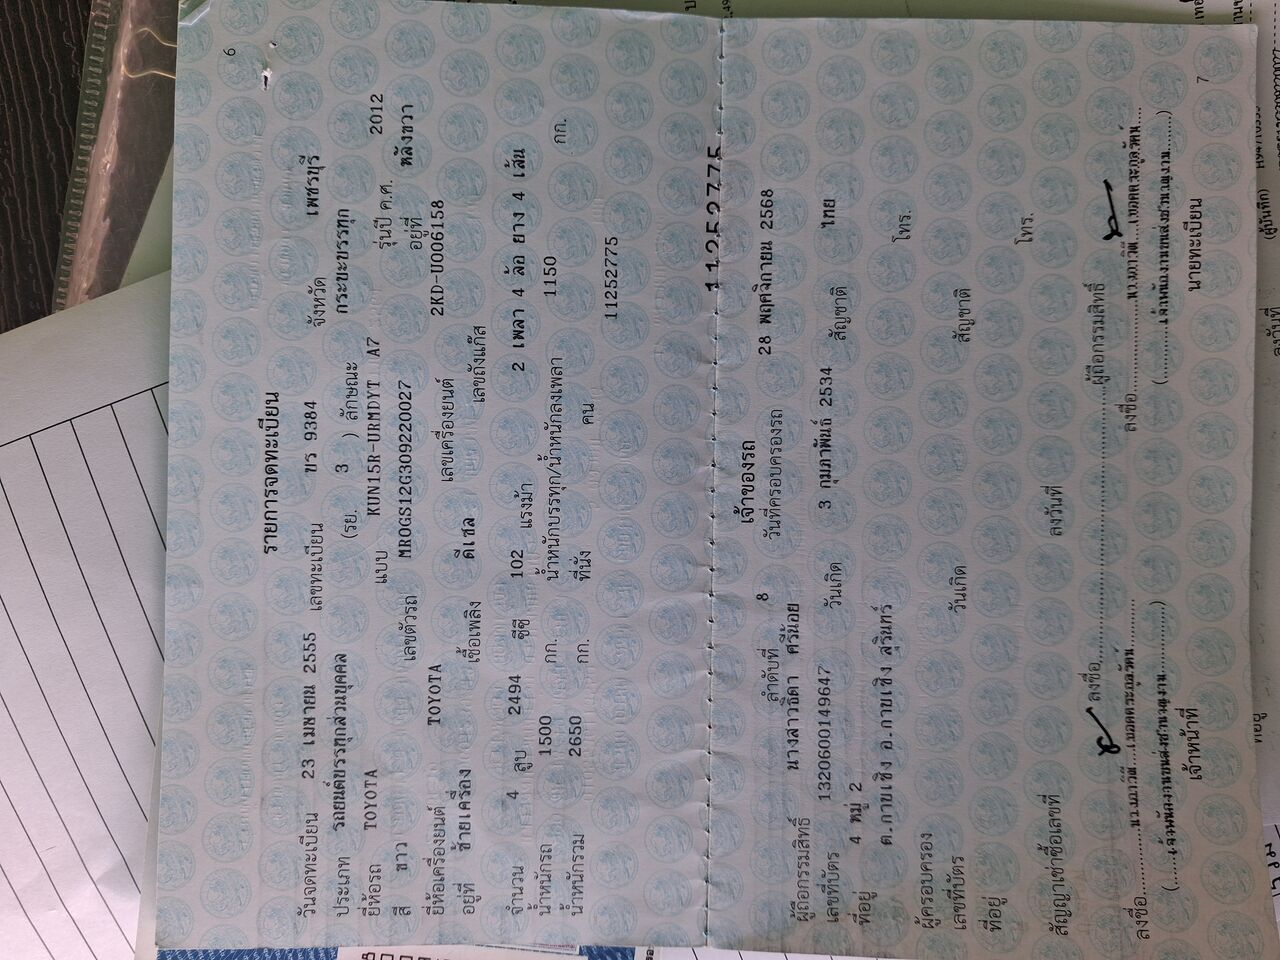 6
รายการจดทะเบียน
วันจดทะเบียน 23 เมษายน 2555 เลขทะเบียน ขร 9384 จังหวัด เพชรบุรี
ประเภท รถยนต์บรรทุกส่วนบุคคล (รย. 3 ) ลักษณะ กระบะบรรทุก
ยี่ห้อรถ TOYOTA แบบ KUN15R-URMDYT A7 รุ่นปี ค.ศ. 2012
สี ขาว เลขตัวรถ MROGS12G309220027 อยู่ที่ หลังขวา
ยี่ห้อเครื่องยนต์ TOYOTA เลขเครื่องยนต์ 2KD-U006158
อยู่ที่ ซ้ายเครื่อง เชื้อเพลิง ดีเซล เลขถังแก๊ส
จำนวน 4 สูบ 2494 ซีซี 102 แรงม้า 2 เพลา 4 ล้อ ยาง 4 เส้น
น้ำหนักรถ 1500 กก. น้ำหนักบรรทุก/น้ำหนักลงเพลา 1150 กก.
น้ำหนักรวม 2650 กก. ที่นั่ง คน 11252775
11252775
เจ้าของรถ
ลำดับที่ 8 วันที่ครอบครองรถ 28 พฤศจิกายน 2568
ผู้ถือกรรมสิทธิ์ นางสาวธิดา ศรีน้อย
เลขที่บัตร 1320600149647 วันเกิด 3 กุมภาพันธ์ 2534 สัญชาติ ไทย
ที่อยู่ 4 หมู่ 2
ต.กาบเชิง อ.กาบเชิง สุรินทร์ โทร.
ผู้ครอบครอง
เลขที่บัตร วันเกิด สัญชาติ
ที่อยู่ โทร.
สัญญาเช่าซื้อเลขที่ ลงวันที่
ลงชื่อ ผู้ถือกรรมสิทธิ์
ลงชื่อ ลงชื่อ
เจ้าหน้าที่ นายทะเบียน
7
(ผู้บันทึก)
ลงวันที่
ที่อยู่